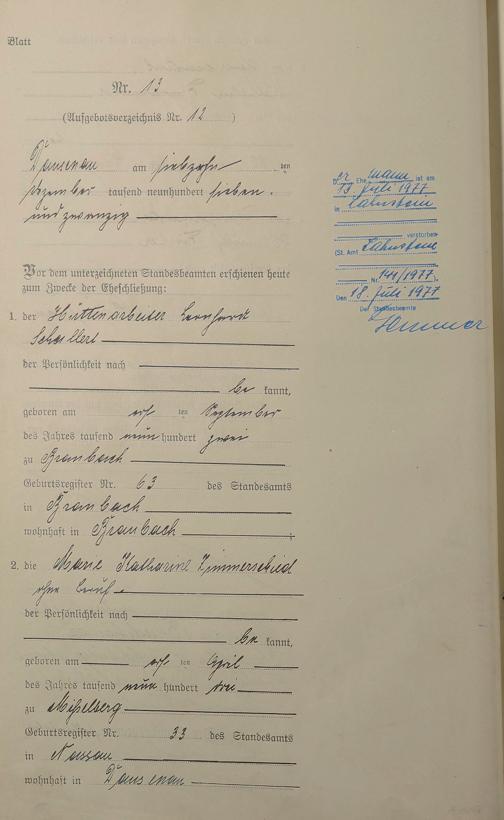 Blatt
Nr. 13
(Aufgebotsverzeichnis Nr. 12 )
Dausenau am siebzehn ten
Dezember tausend neunhundert sieben-
undzwanzig
Vor dem unterzeichneten Standesbeamten erschienen heute
zum Zwecke der Eheschließung:
1. der Hüttenarbeiter Leonhard
der Persönlichkeit nach
be kannt,
geboren am elf ten September
des Jahres tausend neun hundert zwei
zu Braubach
Geburtsregister Nr. 63 des Standesamts
in Braubach
wohnhaft in Braubach
2. die Marie Katharine Zimmerschied
ohne Beruf
der Persönlichkeit nach
be kannt,
geboren am elf ten April
des Jahres tausend neun hundert drei
zu Misselberg
Geburtsregister Nr. 33 des Standesamts
in Nassau
wohnhaft in Dausenau
Der Ehemann ist am
13. Juli 1977
in Lahnstein
verstorben
(St. Amt Lahnstein
Nr. 141/1977).
Den 18. Juli 1977
Der Standesbeamte